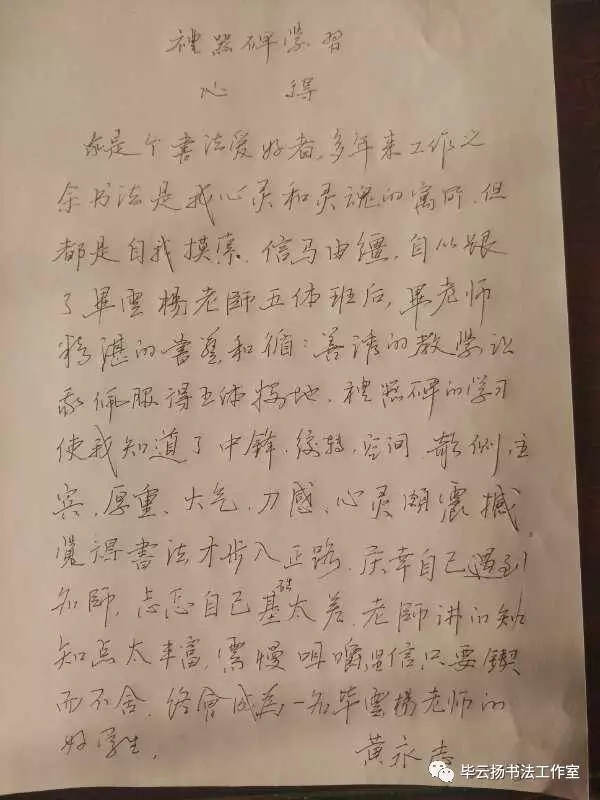 禮器碑學習
心 得
我是个書法爱好者，多年来工作之
余书法是我心灵和灵魂的寓所，但
都是自我摸索，信马由缰，自从跟
了畢雲楊老師五体班后，畢老师
精湛的書藝和循:善诱的教學让
我佩服得五体投地，禮器碑的学习
使我知道了中锋、绞转、空间、欹侧、主
宾、厚重、大气、刀感、心灵頗震撼，
覺得書法才步入正路，庆幸自己遇到
名師，忐忑自己基础太差，老師讲的知
知点太丰富，需慢咀嚼，坚信只要鍥
而不舍，终會成為一名毕雲楊老师的
好學生，
黄永志
毕云扬书法工作室